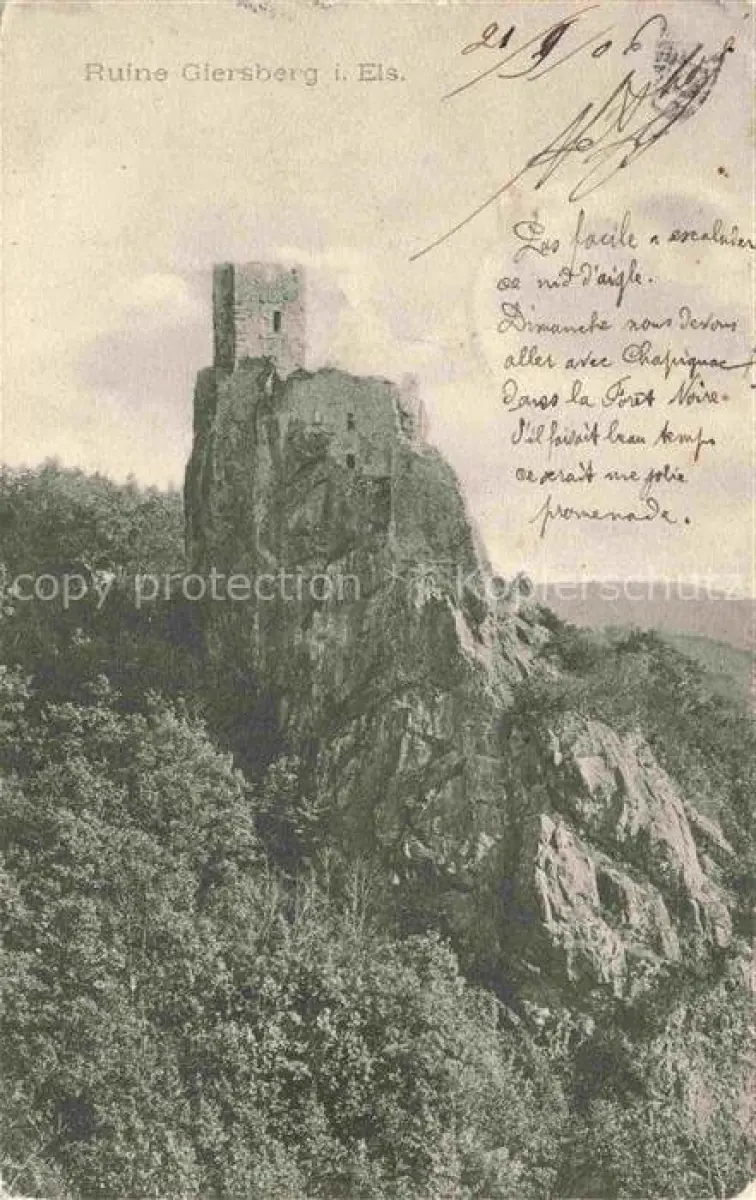 Ruine Giersberg i. Els.
21/9/06
Pas facile a escalader
ce nid d'aigle.
Dimanche nous devons
aller avec Chapignac
dans la Forêt Noire.
S'il faisait beau temps
ce serait une jolie
promenade.
copy protection / Kopierschutz